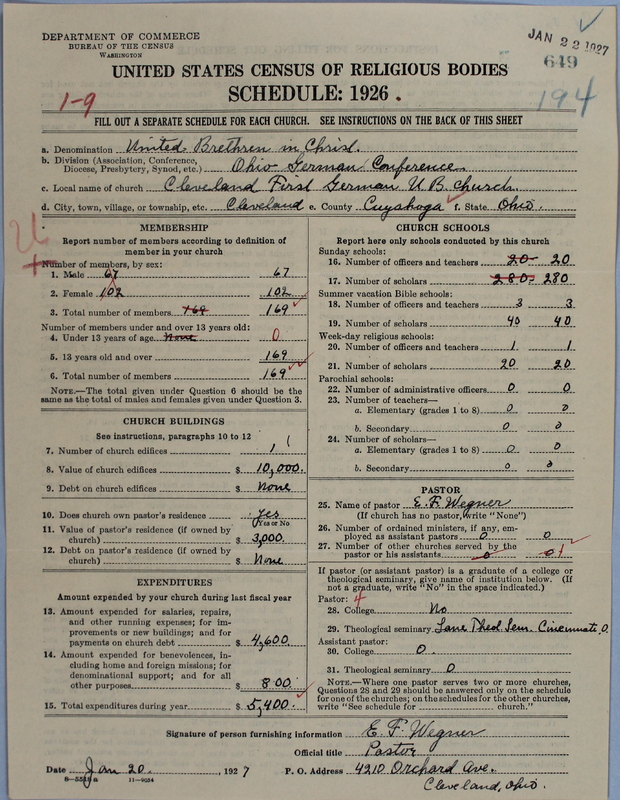 DEPARTMENT OF COMMERCE
BUREAU OF THE CENSUS
WASHINGTON
JAN 22 1927
649
194
1-9
UNITED STATES CENSUS OF RELIGIOUS BODIES
SCHEDULE: 1926.
FILL OUT A SEPARATE SCHEDULE FOR EACH CHURCH. SEE INSTRUCTIONS ON THE BACK OF THIS SHEET
a. Denomination United Brethren in Christ.
b. Division (Association, Conference, Diocese, Presbytery, Synod, etc.) Ohio German Conference
c. Local name of church Cleveland First German U. B. church.
d. City, town, village, or township, etc. Cleveland e. County Cuyahoga f. State Ohio.
MEMBERSHIP
Report number of members according to definition of
member in your church
Number of members, by sex:
1. Male 67 67
2. Female 102 102
3. Total number of members 169 169
Number of members under and over 13 years old:
4. Under 13 years of age None 0
5. 13 years old and over 169
6. Total number of members 169
NOTE.—The total given under Question 6 should be
same as the total of males and females given under Question 3.
CHURCH BUILDINGS
See instructions, paragraphs 10 to 12
7. Number of church edifices 1 1
8. Value of church edifices $ 10,000.
9. Debt on church edifices $ None
10. Does church own pastor's residence Yes
(Yes or No)
11. Value of pastor's residence (if owned by
church) $ 3,000.
12. Debt on pastor's residence (if owned by
church) $ None
EXPENDITURES
Amount expended by your church during last fiscal year
13. Amount expended for salaries, repairs,
and other running expenses; for im-
provements or new buildings; and for
payments on church debt $ 4,600.
14. Amount expended for benevolences, in-
cluding home and foreign missions; for
denominational support; and for all
other purposes $ 800.
15. Total expenditures during year $ 5,400.
CHURCH SCHOOLS
Report here only schools conducted by this church
Sunday schools:
16. Number of officers and teachers 20 20
17. Number of scholars 280 280
Summer vacation Bible schools:
18. Number of officers and teachers 3 3
19. Number of scholars 40 40
Week-day religious schools:
20. Number of officers and teachers 1 1
21. Number of scholars 20 20
Parochial schools:
22. Number of administrative officers 0 0
23. Number of teachers—
a. Elementary (grades 1 to 8) 0 0
b. Secondary 0 0
24. Number of scholars—
a. Elementary (grades 1 to 8) 0 0
b. Secondary 0 0
PASTOR
25. Name of pastor E. F. Wegner
(If church has no pastor, write "None")
26. Number of ordained ministers, if any, em-
ployed as assistant pastors 0 0
27. Number of other churches served by the
pastor or his assistants 0 0 1
If pastor (or assistant pastor) is a graduate of a college or
theological seminary, give name of institution below. (If
not a graduate, write "No" in the space indicated.)
Pastor: 4
28. College No
29. Theological seminary Lane Theol. Sem. Cincinnati, O.
Assistant pastor:
30. College 0.
31. Theological seminary 0
NOTE.—Where one pastor serves two or more churches,
Questions 28 and 29 should be answered only on the schedule
for one of the churches; on the schedules for the other churches,
write "See schedule for church."
Signature of person furnishing information E. F. Wegner
Official title Pastor
Date Jan 20. , 1927 P. O. Address 4210 Orchard Ave.
8—5518 a 11—9034 Cleveland, Ohio.